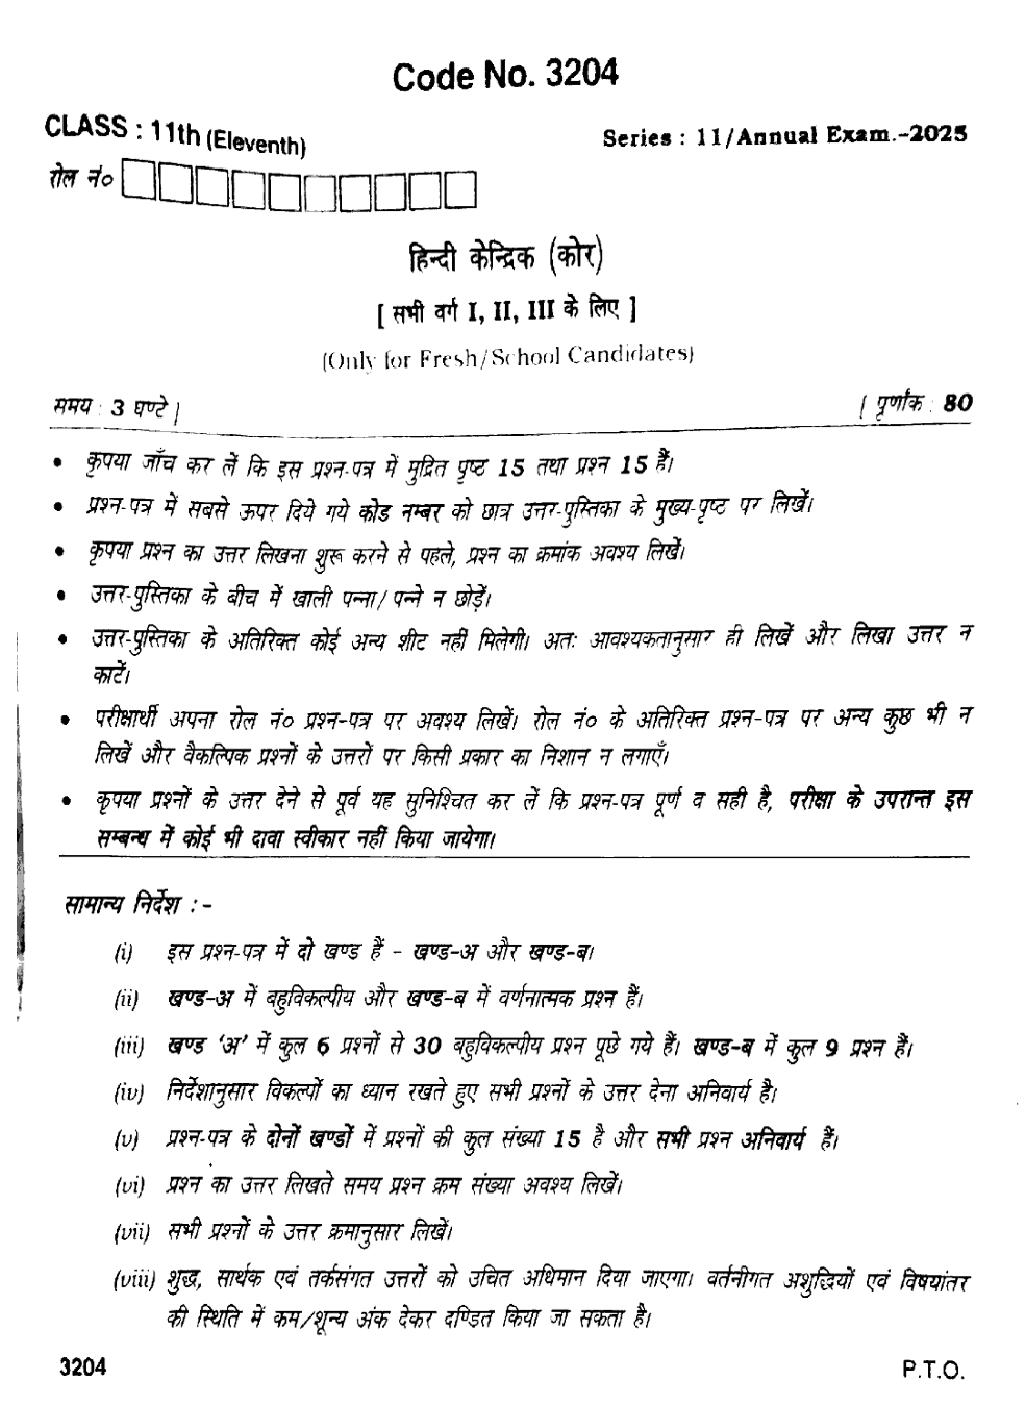 Code No. 3204
CLASS : 11th (Eleventh)
Series : 11/Annual Exam.-2025
रोल नं०
हिन्दी केन्द्रिक (कोर)
[ सभी वर्ग I, II, III के लिए ]
(Only for Fresh/School Candidates)
समय : 3 घण्टे ]
[ पूर्णांक : 80
• कृपया जाँच कर लें कि इस प्रश्न-पत्र में मुद्रित पृष्ट 15 तथा प्रश्न 15 हैं।
• प्रश्न-पत्र में सबसे ऊपर दिये गये कोड नम्बर को छात्र उत्तर-पुस्तिका के मुख्य-पृष्ट पर लिखें।
• कृपया प्रश्न का उत्तर लिखना शुरू करने से पहले, प्रश्न का क्रमांक अवश्य लिखें।
• उत्तर-पुस्तिका के बीच में खाली पन्ना/पन्ने न छोड़ें।
• उत्तर-पुस्तिका के अतिरिक्त कोई अन्य शीट नहीं मिलेगी। अतः आवश्यकतानुसार ही लिखें और लिखा उत्तर न
काटें।
• परीक्षार्थी अपना रोल नं० प्रश्न-पत्र पर अवश्य लिखें। रोल नं० के अतिरिक्त प्रश्न-पत्र पर अन्य कुछ भी न
लिखें और वैकल्पिक प्रश्नों के उत्तरों पर किसी प्रकार का निशान न लगाएँ।
• कृपया प्रश्नों के उत्तर देने से पूर्व यह सुनिश्चित कर लें कि प्रश्न-पत्र पूर्ण व सही है, परीक्षा के उपरान्त इस
सम्बन्ध में कोई भी दावा स्वीकार नहीं किया जायेगा।
सामान्य निर्देश :-
(i) इस प्रश्न-पत्र में दो खण्ड हैं - खण्ड-अ और खण्ड-ब।
(ii) खण्ड-अ में बहुविकल्पीय और खण्ड-ब में वर्णनात्मक प्रश्न हैं।
(iii) खण्ड 'अ' में कुल 6 प्रश्नों से 30 बहुविकल्पीय प्रश्न पूछे गये हैं। खण्ड-ब में कुल 9 प्रश्न हैं।
(iv) निर्देशानुसार विकल्पों का ध्यान रखते हुए सभी प्रश्नों के उत्तर देना अनिवार्य है।
(v) प्रश्न-पत्र के दोनों खण्डों में प्रश्नों की कुल संख्या 15 है और सभी प्रश्न अनिवार्य हैं।
(vi) प्रश्न का उत्तर लिखते समय प्रश्न क्रम संख्या अवश्य लिखें।
(vii) सभी प्रश्नों के उत्तर क्रमानुसार लिखें।
(viii) शुद्ध, सार्थक एवं तर्कसंगत उत्तरों को उचित अधिमान दिया जाएगा। वर्तनीगत अशुद्धियों एवं विषयांतर
की स्थिति में कम/शून्य अंक देकर दण्डित किया जा सकता है।
3204
P.T.O.